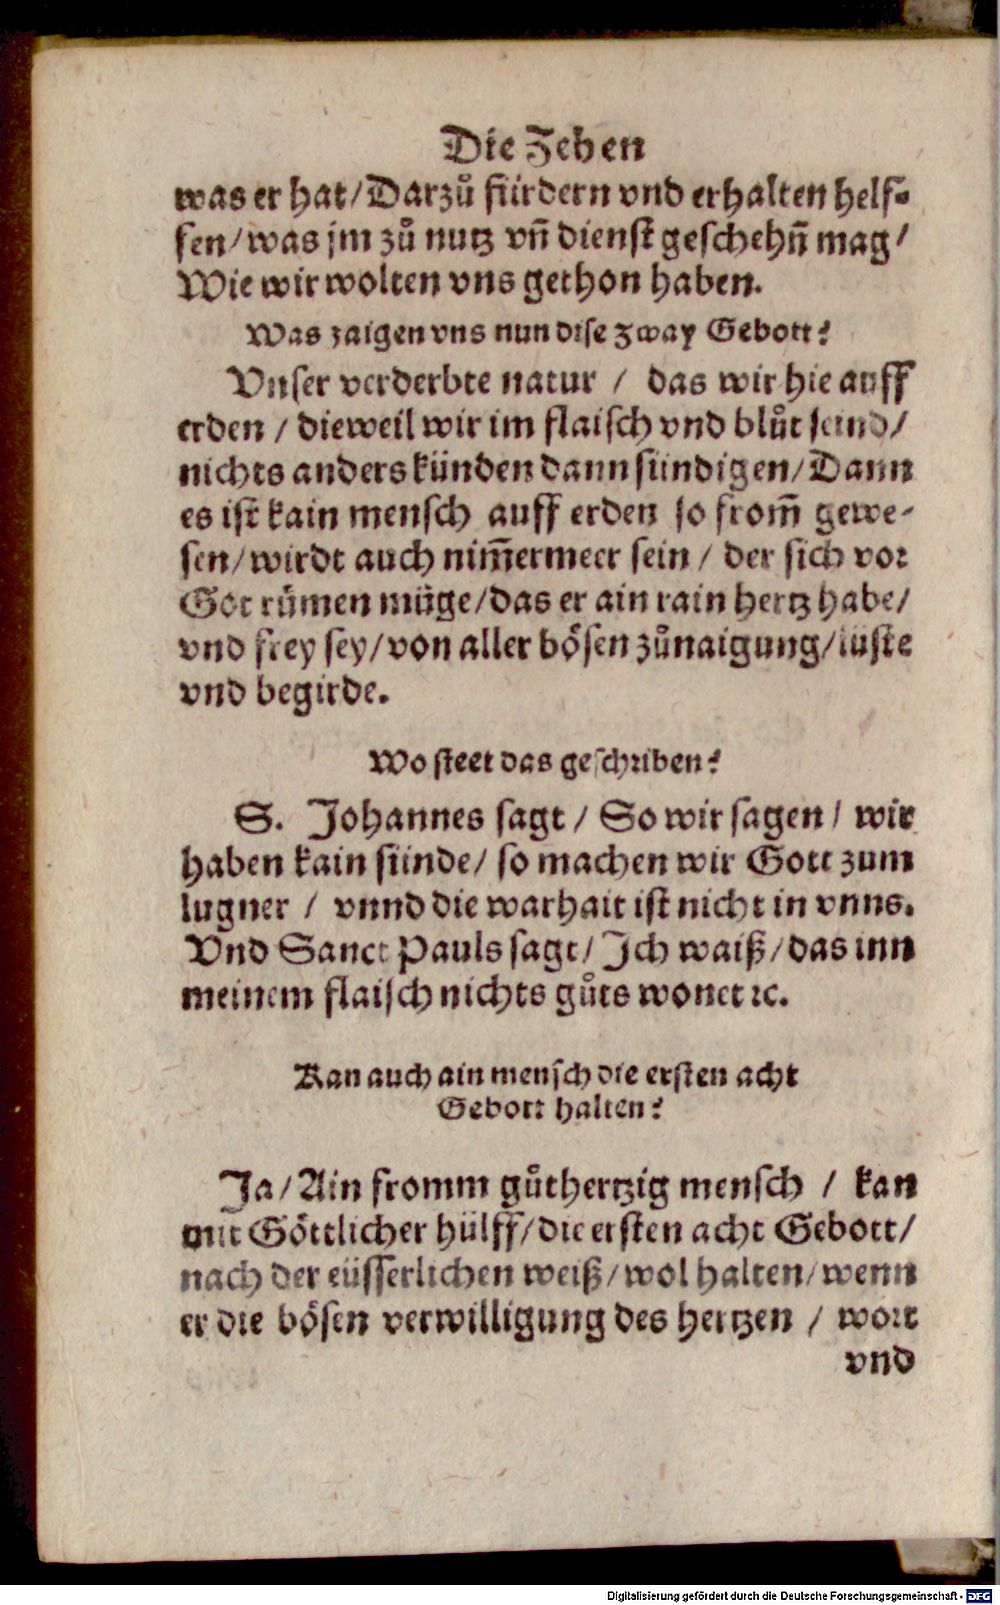 Die Zehen
was er hat/Darzuͦ fürdern vnd erhalten helf⸗
fen/was jm zuͦ nutz vn̄ dienst geschehn̄ mag/
Wie wir wolten vns gethon haben.
Was zaigen vns nun dise zway Gebott?
Vnser verderbte natur / das wir hie auff
erden / dieweil wir im flaisch vnd bluͦt seind/
nichts anders künden dann sündigen/Dann
es ist kain mensch auff erden so from̄ gewe-
sen/wirdt auch nim̄ermeer sein / der sich vor
Got rümen müge/das er ain rain hertz habe/
vnd frey sey/von aller bösen zuͦnaigung/lüste
vnd begirde.
Wo steet das geschriben?
S. Johannes sagt / So wir sagen / wir
haben kain sünde/ so machen wir Gott zum
lugner / vnnd die warhait ist nicht in vnns.
Vnd Sanct Pauls sagt/ Ich waiß/das inn
meinem flaisch nichts guͦts wonet ꝛc.
Kan auch ain mensch die ersten acht
Gebott halten?
Ja/Ain fromm guͦthertzig mensch / kan
mit Göttlicher hülff/die ersten acht Gebott/
nach der eüsserlichen weiß/wol halten/wenn
er die bösen verwilligung des hertzen / wort
vnd
Digitalisierung gefördert durch die Deutsche Forschungsgemeinschaft - DFG